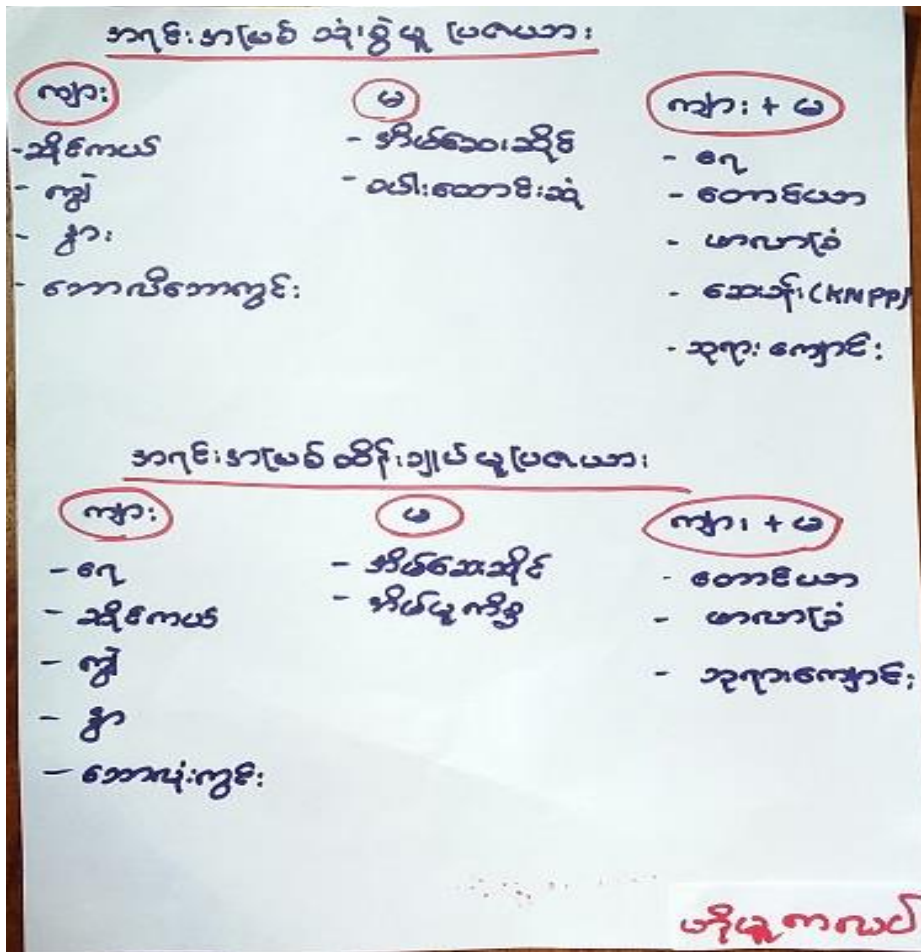 အရင်းအမြစ် သုံးစွဲယူ ပြဇယား
ကျား
-ဆိုင်ကယ်
- ကျွဲ
- နွား
- ဘောလီဘောကွင်း
မ
- အိမ်ဆေးဆိုင်
- ဝါးထောင်းဆုံ
ကျား + မ
- ရေ
- တောင်ယာ
- ဖာလာခြံ
- ဆေးခန်း (KNPP)
- ဘုရားကျောင်း
အရင်းအမြစ် ထိန်းချုပ်ယူပြဇယား
ကျား
- ရေ
- ဆိုင်ကယ်
- ကျွဲ
- နွာ
- ဘောလုံးကွင်း
မ
- အိမ်ဆေးဆိုင်
- အိမ်မူကိစ္စ
ကျား + မ
- တောင်ယာ
- ဖာလာခြံ
- ဘုရားကျောင်း